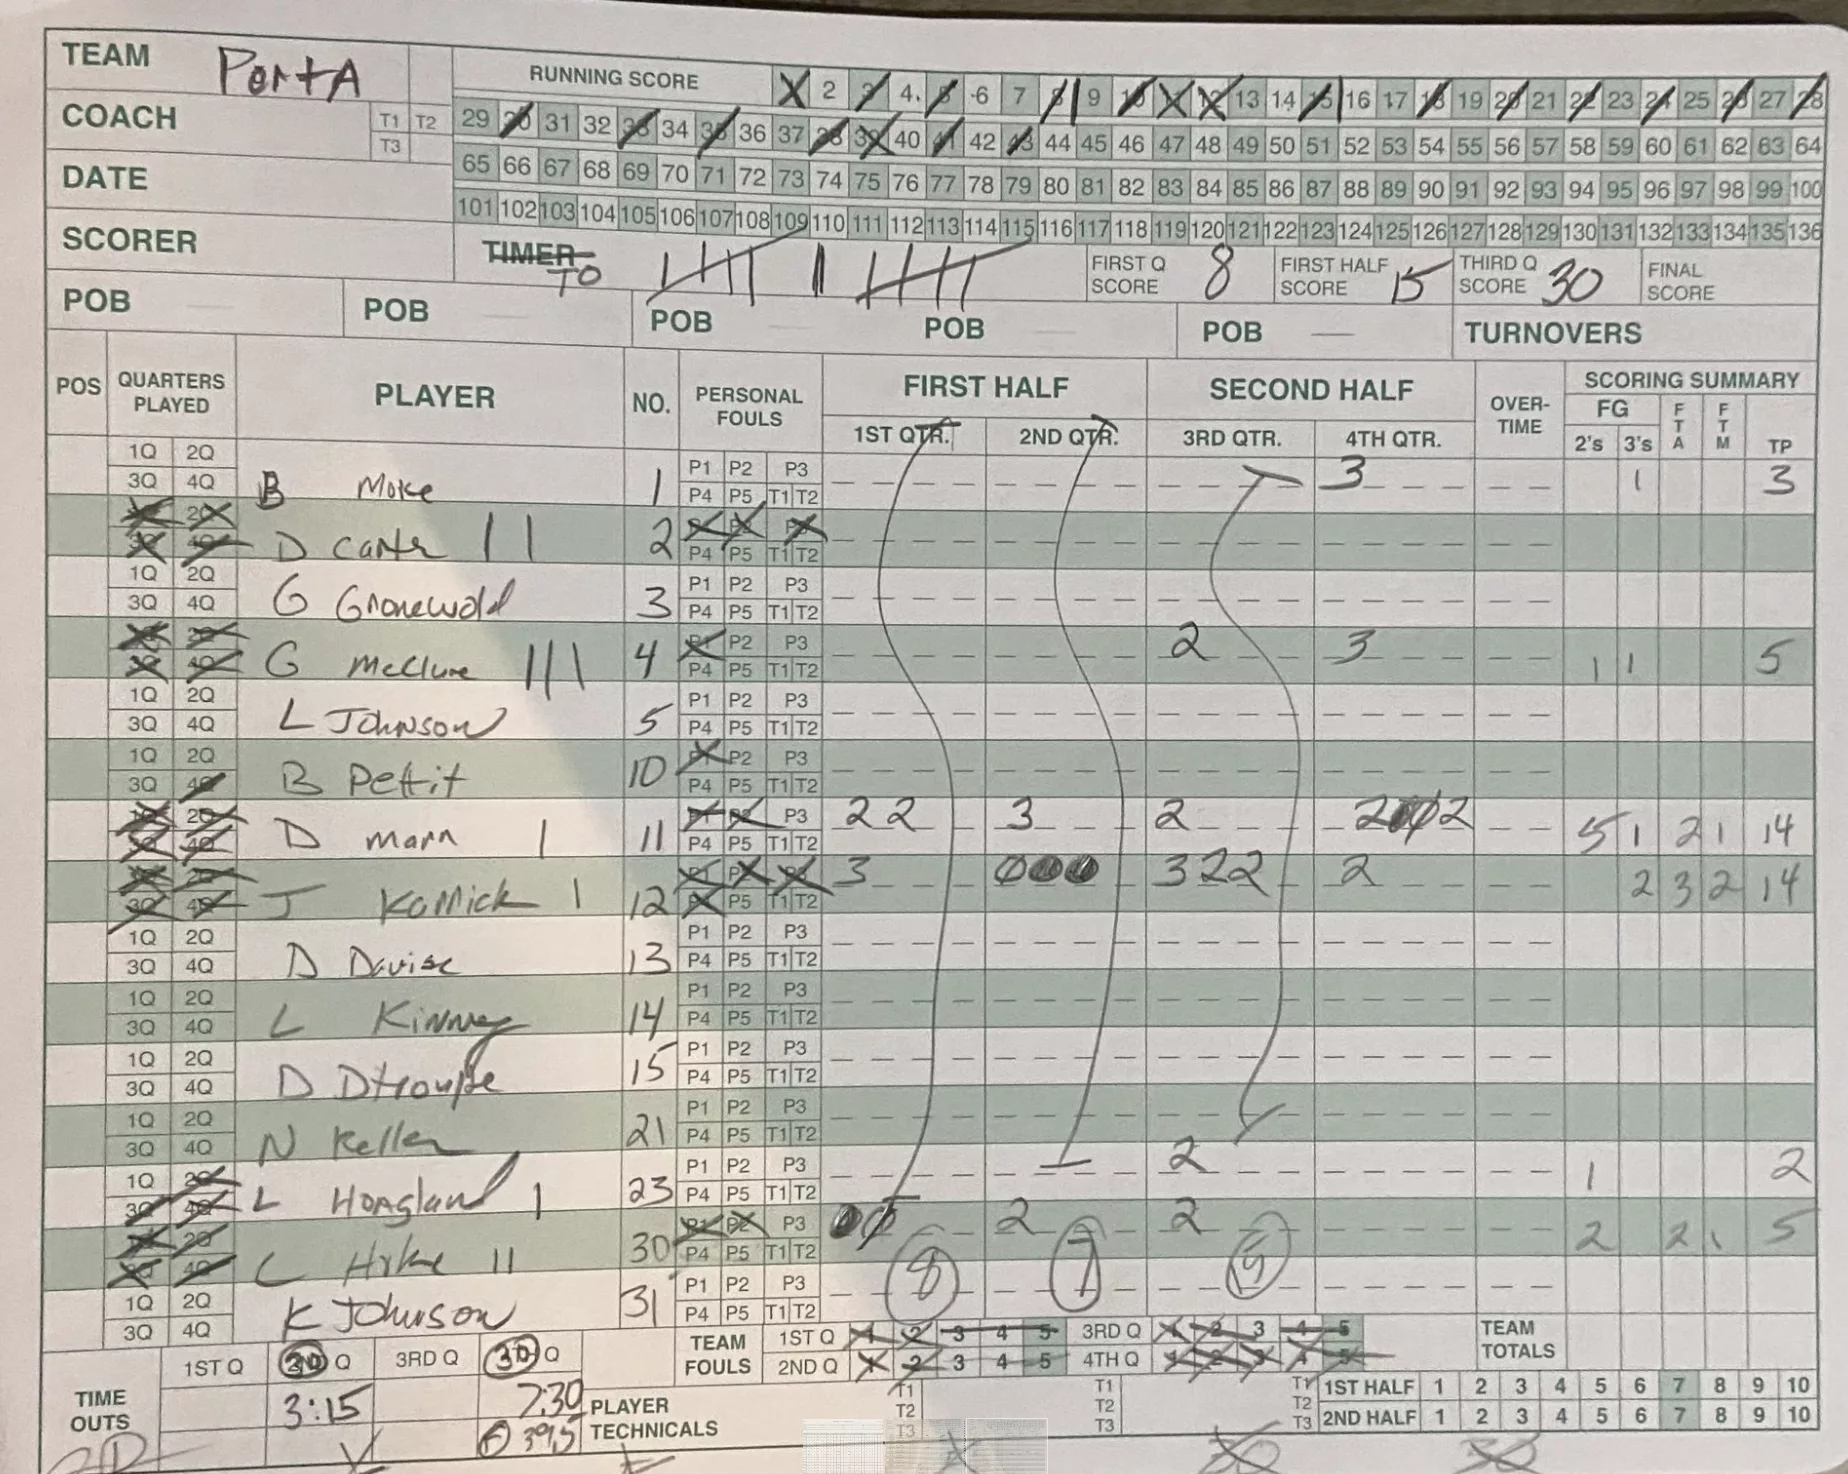 TEAM PortA RUNNING SCORE 1 2 3 4 5 6 7 8 9 10 11 12 13 14 15 16 17 18 19 20 21 22 23 24 25 26 27 28
COACH T1 T2 T3 29 30 31 32 33 34 35 36 37 38 39 40 41 42 43 44 45 46 47 48 49 50 51 52 53 54 55 56 57 58 59 60 61 62 63 64
DATE 65 66 67 68 69 70 71 72 73 74 75 76 77 78 79 80 81 82 83 84 85 86 87 88 89 90 91 92 93 94 95 96 97 98 99 100
101 102 103 104 105 106 107 108 109 110 111 112 113 114 115 116 117 118 119 120 121 122 123 124 125 126 127 128 129 130 131 132 133 134 135 136
SCORER TIMER TO FIRST Q SCORE 8 FIRST HALF SCORE 15 THIRD Q SCORE 30 FINAL SCORE
POB POB POB POB POB TURNOVERS
POS QUARTERS PLAYED PLAYER NO. PERSONAL FOULS FIRST HALF SECOND HALF OVER-TIME SCORING SUMMARY
1ST QTR. 2ND QTR. 3RD QTR. 4TH QTR. FG 2's 3's FTA FTM TP
1Q 2Q P1 P2 P3
3Q 4Q B Moke 1 P4 P5 T1 T2 3 1 3
1Q 2Q
3Q 4Q D Carter 2 P4 P5 T1 T2
1Q 2Q P1 P2 P3
3Q 4Q G Gronewold 3 P4 P5 T1 T2
1Q 2Q P1 P2 P3
3Q 4Q G McClure 4 P4 P5 T1 T2 2 3 1 1 5
1Q 2Q P1 P2 P3
3Q 4Q L Johnson 5 P4 P5 T1 T2
1Q 2Q P2 P3
3Q 4Q B Pettit 10 P4 P5 T1 T2
1Q 2Q P1 P2 P3
3Q 4Q D Marr 11 P4 P5 T1 T2 2 2 3 2 2 2 5 1 2 1 14
1Q 2Q P1 P2 P3
3Q 4Q J 12 P5 T1 T2 3 3 2 2 2 2 3 2 14
1Q 2Q P1 P2 P3
3Q 4Q D 13 P4 P5 T1 T2
1Q 2Q P1 P2 P3
3Q 4Q L Kinney 14 P4 P5 T1 T2
1Q 2Q P1 P2 P3
3Q 4Q D 15 P4 P5 T1 T2
1Q 2Q P1 P2 P3
3Q 4Q N Keller 21 P4 P5 T1 T2
1Q 2Q P1 P2 P3
3Q 4Q L Hoagland 23 P4 P5 T1 T2 2 1 2
1Q 2Q P1 P2 P3
3Q 4Q C 30 P4 P5 T1 T2 2 2 2 2 1 5
1Q 2Q P1 P2 P3
3Q 4Q K Johnson 31 P4 P5 T1 T2 8 7
TEAM FOULS 1ST Q 1 2 3 4 5 3RD Q 1 2 3 4 5 TEAM TOTALS
2ND Q 1 2 3 4 5 4TH Q 1 2 3 4 5
TIME OUTS 1ST Q Q 3RD Q Q
3:15 7:30
PLAYER TECHNICALS T1 T2 T3 T1 T2 T3 T1 T2 T3
1ST HALF 1 2 3 4 5 6 7 8 9 10
2ND HALF 1 2 3 4 5 6 7 8 9 10